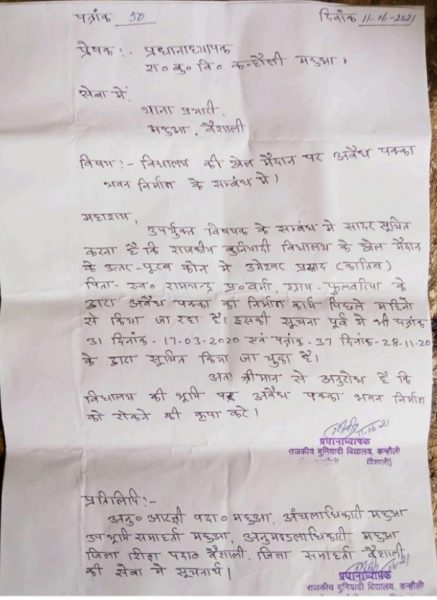 पत्रांक 50 दिनांक 11-06-2021
प्रेषक :- प्रधानाध्यापक
रा० बु० वि० कन्हौली महुआ।
सेवा में
थाना प्रभारी,
महुआ, वैशाली
विषय :- विद्यालय की खेल मैदान पर अवैध पक्का
भवन निर्माण के सम्बंध में।
महाशय,
उपर्युक्त विषयक के सम्बंध में सादर सूचित
करना है कि राजकीय बुनियादी विद्यालय के खेल मैदान
के उत्तर-पूरब कोन में उमेश्वर प्रसाद (कातिब)
पिता - स्व० रामचन्द्र प्र० वर्मा, ग्राम- फुलवरिया के
द्वारा अवैध पक्का का निर्माण कार्य पिछले महिनों
से किया जा रहा है। इसकी सूचना पूर्व में भी पत्रांक
31 दिनांक - 17-03-2020 एवं पत्रांक - 37 दिनांक - 28-11-20
के द्वारा सूचित किया जा चुका है।
अतः श्रीमान से अनुरोध है कि
विद्यालय की भूमि पर अवैध पक्का भवन निर्माण
को रोकने की कृपा करें।
11.06.21
प्रधानाध्यापक
राजकीय बुनियादी विद्यालय, कन्हौली
(वैशाली)
प्रतिलिपि :-
अनु० आरक्षी पदा० महुआ, अंचलाधिकारी महुआ
उप भूमि समाहर्ता महुआ, अनुमण्डलाधिकारी महुआ
जिला शिक्षा पदा० वैशाली, जिला समाहर्ता वैशाली
की सेवा में सूचनार्थ।
प्रधानाध्यापक
राजकीय बुनियादी विद्यालय, कन्हौली